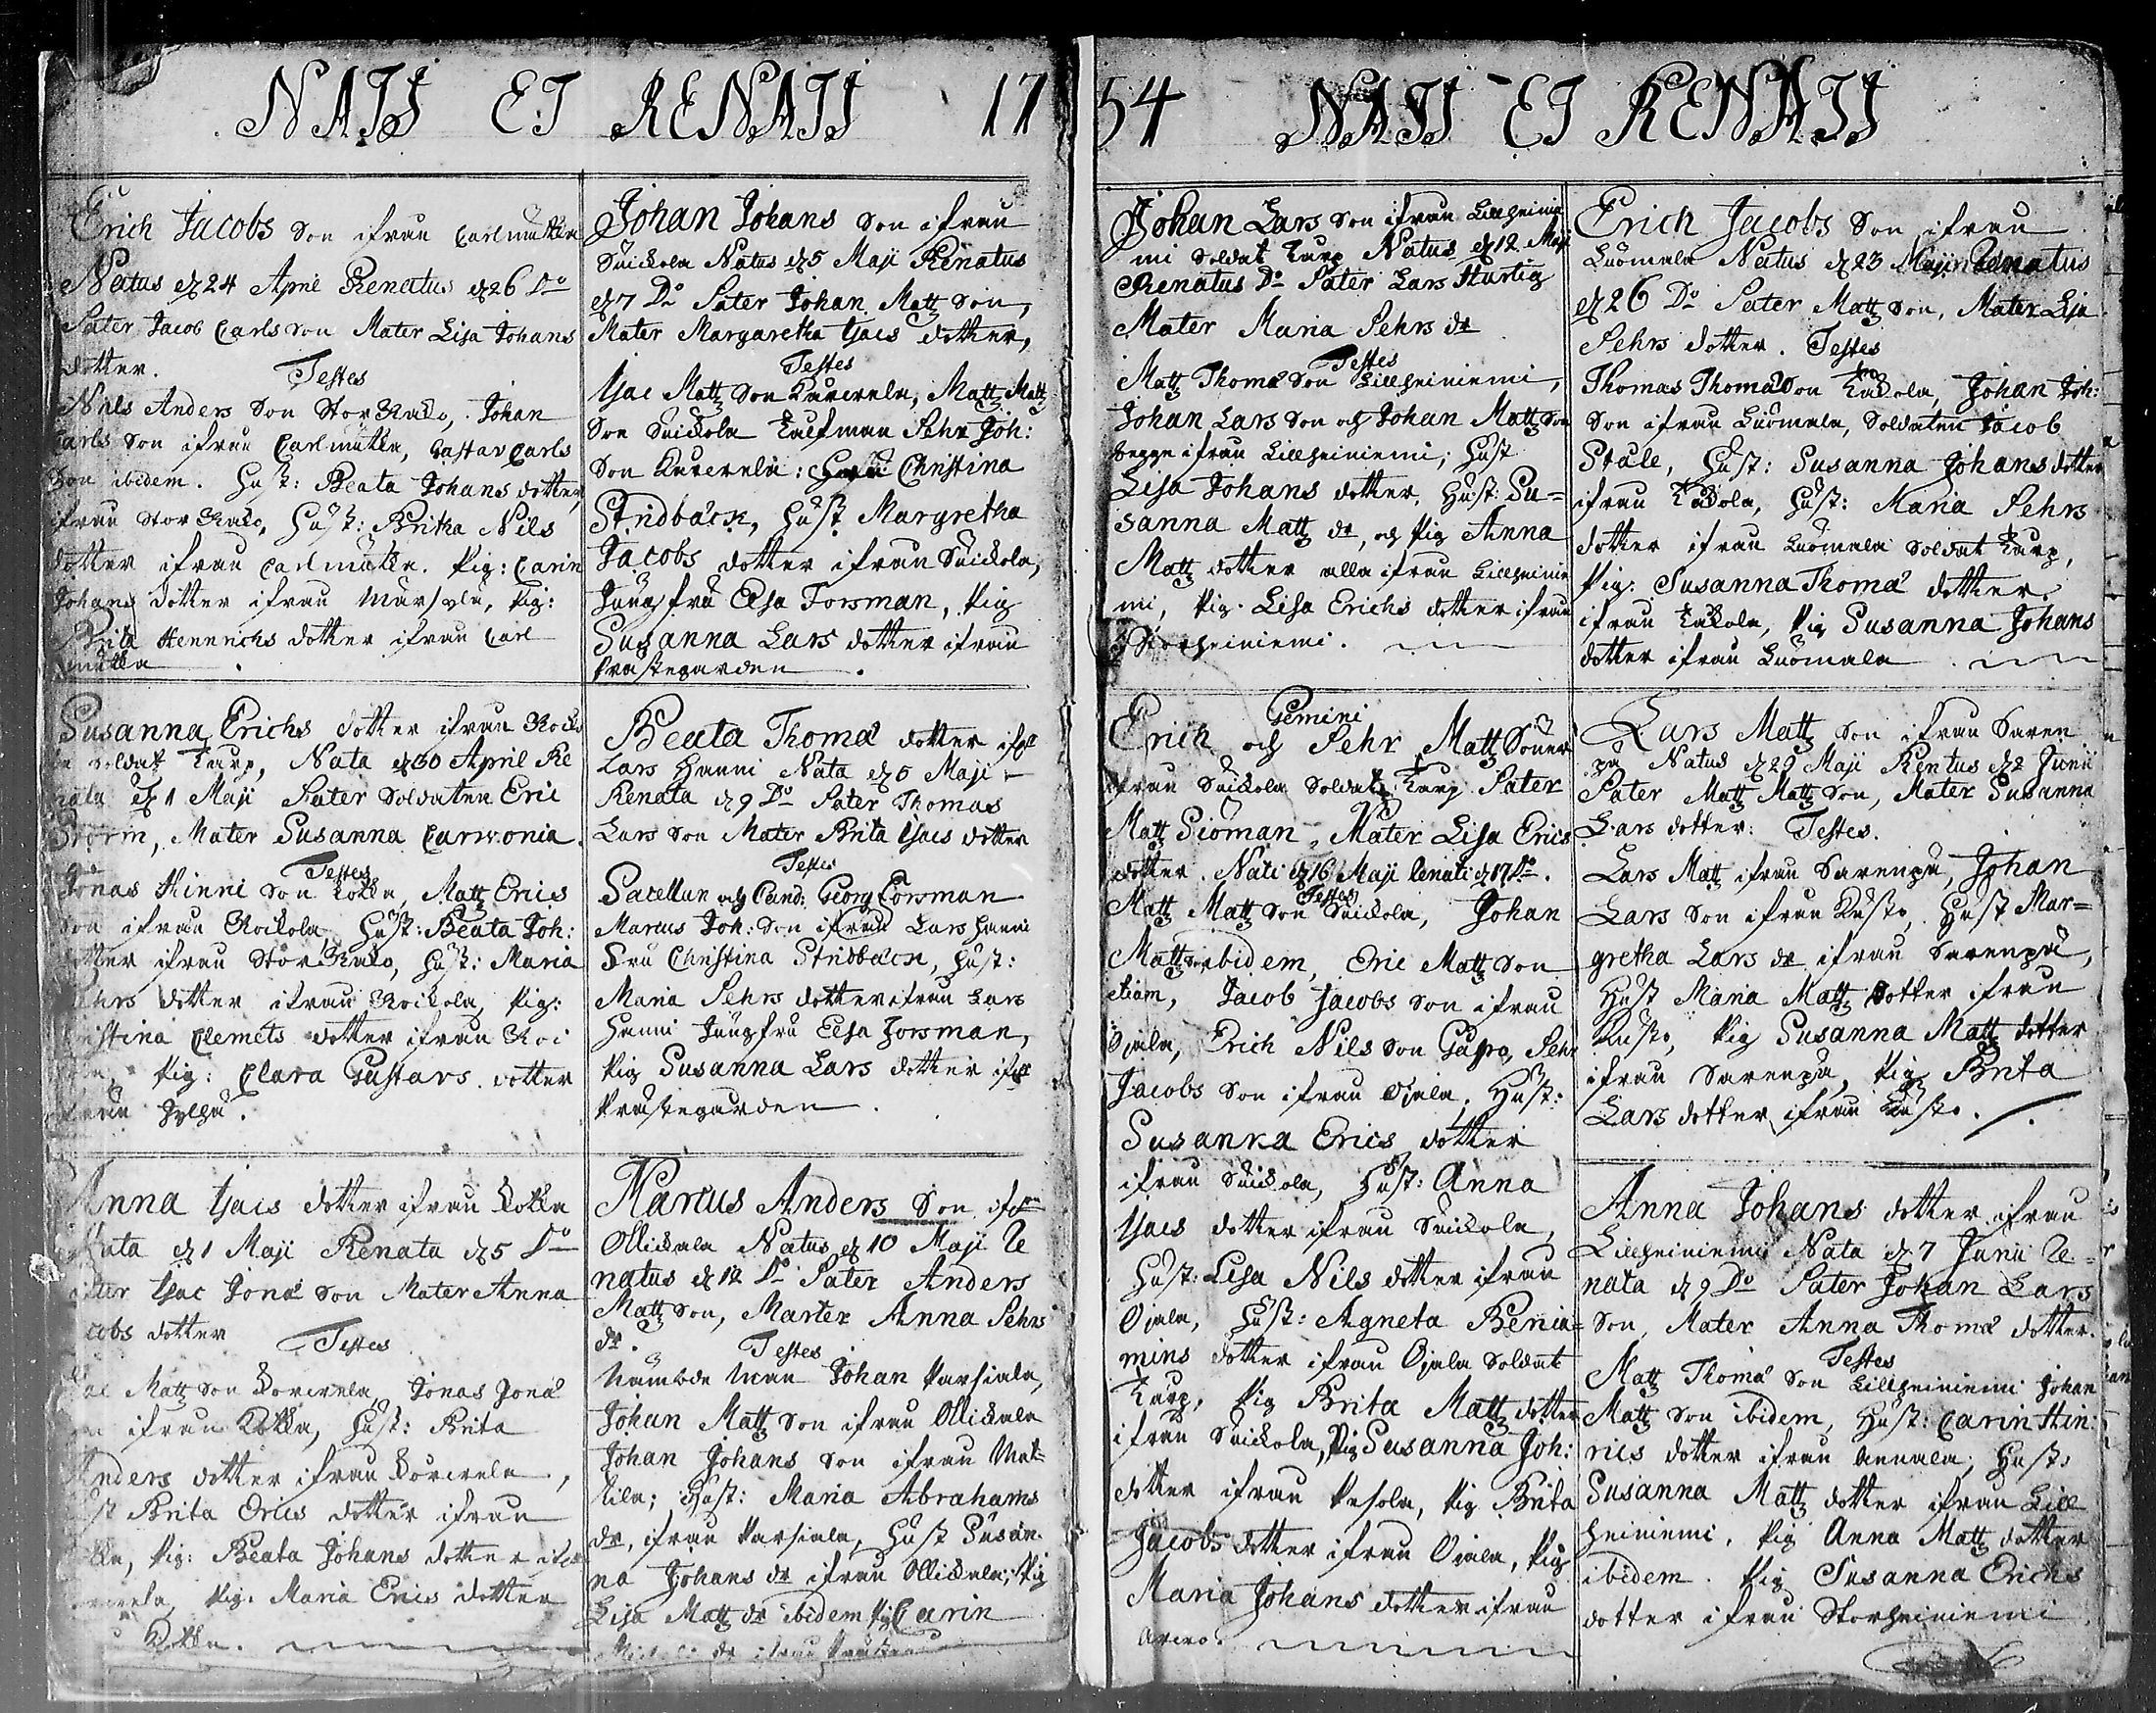 NATI ET RENATI 17
Erich Jacobs Son ifrån Carlmutka
Natus d 24 April Renatus d 26 Do
Pater Jacob Carls Son Mater Lisa Johans
dotter. Testes
Nils Anders Son Stor Rako, Johan
Carls Son ifrån Carlmutka, Gustav Carls
Son ibidem. Hust: Beata Johans dotter,
ifrån Stor Rako, Hust: Brita Nils
dotter ifrån Carlmutka. Pig: Carin
Johans dotter ifrån Pig:
Brita Hennrichs dotter ifrån Carl
mutka
Susanna Erichs dotter ifrån
soldat Karp, Nata d 30 April Re
nata d 1 Maji Pater Soldaten Eric
Storm, Mater Susanna Carvonia.
Testes
Jonas Hinni Son Kokka, Matz Erics
Son ifrån Roikola, Hust: Beata Joh:
dotter ifrån Stor Rako, Hust: Maria
Pehrs dotter ifrån Roikola, Pig:
Christina Clemets dotter ifrån Roi
Pig: Clara Gustavs dotter
ifrån Jylhä.
Anna Isacs dotter ifrån Kokka
Nata d 1 Maji Renata d 5 Do
Pater Isac Jonæ Son Mater Anna
Jacobs dotter
Testes
Isac Matz Son Kovirela, Jonas Jonæ
Son ifrån Kokka, Hust: Brita
Anders dotter ifrån Kovirela,
Hust Brita Erics dotter ifrån
Kokka, Pig: Beata Johans dotter ifrån
Pig: Maria Erics dotter
Kokka.
Johan Johans Son ifrån
Suickola Natus d 5 Maji Renatus
d 7 Do Pater Johan Matz Son,
Mater Margaretha Isacs dotter,
Testes
Isac Matz Son Kuverela, Matz Matz
Son Suickola Kaufman Pehr Joh:
Son Kuverela: Christina
Stridbäck, Hust Margretha
Jacobs dotter ifrån Suickola,
Jungfru Elsa Forsman, Pig
Susanna Lars dotter ifrån
Prästegården.
Beata Thomæ dotter ifrån
Lars Hanni Nata d 5 Maji
Renata d 9 Do Pater Thomas
Lars Son Mater Brita Isacs dotter
Testes
Sacellan och Cand: Georg Forsman
Marcus Joh: Son ifrån Lars Hanni
Fru Christina Stridbäck, Hust:
Maria Pehrs dotter ifrån Lars
Hanni Jungfru Elsa Forsman,
Pig Susanna Lars dotter ifrån
Prästegården.
Marcus Anders Son ifrån
Ollickala Natus d 10 Maji Re
natus d 12 Do Pater Anders
Matz Son, Marter Anna Pehrs
dr. Testes
Nämbde Man Johan Parsiala,
Johan Matz Son ifrån Ollickala
Johan Johans Son ifrån Mat-
tila; Hust: Maria Abrahams
dr, ifrån Parsiala, Hust Susan-
na Johans dr ifrån Ollickala; Pig
Lisa Matz dr ibidem Pig Carin
dr ifrån
54 NATI ET RENATI
Johan Lars Son ifrån Lillheinie
mi Soldat Karp Natus d 12 Maji
Renatus Do Pater Lars Hurtig
Mater Maria Pehrs dr
Testes
Matz Thomæ Son Lillheiniemi,
Johan Lars Son och Johan Matz Son
begge ifrån Lillheiniemi; Hust
Lisa Johans dotter, Hust: Su=
sanna Matz dr, och Pig Anna
Matz dotter alla ifrån Lillheinie
mi, Pig. Lisa Erichs dotter ifrån
Storheiniemi.
Gemini
Erich och Pehr Matz Söner
ifrån Suickola Soldat Karp Pater
Matz Sioman, Mater Lisa Erics
dotter. Nati d 16 Maji Renati d 17 Do.
Testes
Matz Matz Son Suickola, Johan
Matz Son ibidem, Eric Matz Son
etiam, Jacob Jacobs Son ifrån
Ojala, Erich Nils Son Pehr
Jacobs Son ifrån Ojala, Hust:
Susanna Erics dotter
ifrån Suickola, Hust: Anna
Isacs dotter ifrån Suickola,
Hust: Lisa Nils dotter ifrån
Ojala, Hust: Agneta Benia=
mins dotter ifrån Ojala Soldat
Karp, Pig Brita Matz dotter
ifrån Suickola, Pig Susanna Joh:
dotter ifrån Pesola, Pig Brita
Jacobs dotter ifrån Ojala, Pig
Maria Johans dotter ifrån
Erich Jacobs Son ifrån
Luomala Natus d 23 Maji Renatus
d 26 Do Pater Matz Son, Mater Lisa
Pehrs dotter. Testes
Thomas Thomæ Son Kakola, Johan Joh:
Son ifrån Luomala, Soldaten Jacob
Ståle, Hust: Susanna Johans dotter
ifrån Kakola, Hust: Maria Pehrs
dotter ifrån Luomala Soldat Karp,
Pig: Susanna Thomæ dotter
ifrån Kakola, Pig Susanna Johans
dotter ifrån Luomala
Lars Matz Son ifrån Saren
pä Natus d 29 Maji Rentus d 2 Junii
Pater Matz Matz Son, Mater Susanna
Lars dotter: Testes.
Lars Matz ifrån Sarenpä, Johan
Lars Son ifrån Rusko, Hust Mar=
gretha Lars dr ifrån Sarenpä,
Hust Maria Matz dotter ifrån
Rusko, Pig Susanna Matz dotter
ifrån Sarenpä, Pig Brita
Lars dotter ifrån Rusko.
Anna Johans dotter ifrån
Lillheiniemi Nata d 7 Junii Re=
nata d 9 Do Pater Johan Lars
Son, Mater Anna Thomæ dotter.
Testes
Matz Thomæ Son Lillheiniemi Johan
Matz Son ibidem, Hust: Carin Hin:
rics dotter ifrån Annala, Hust:
Susanna Matz dotter ifrån Lill
heiniemi, Pig Anna Matz dotter
ibidem. Pig Susanna Erichs
dotter ifrån Storheiniemi